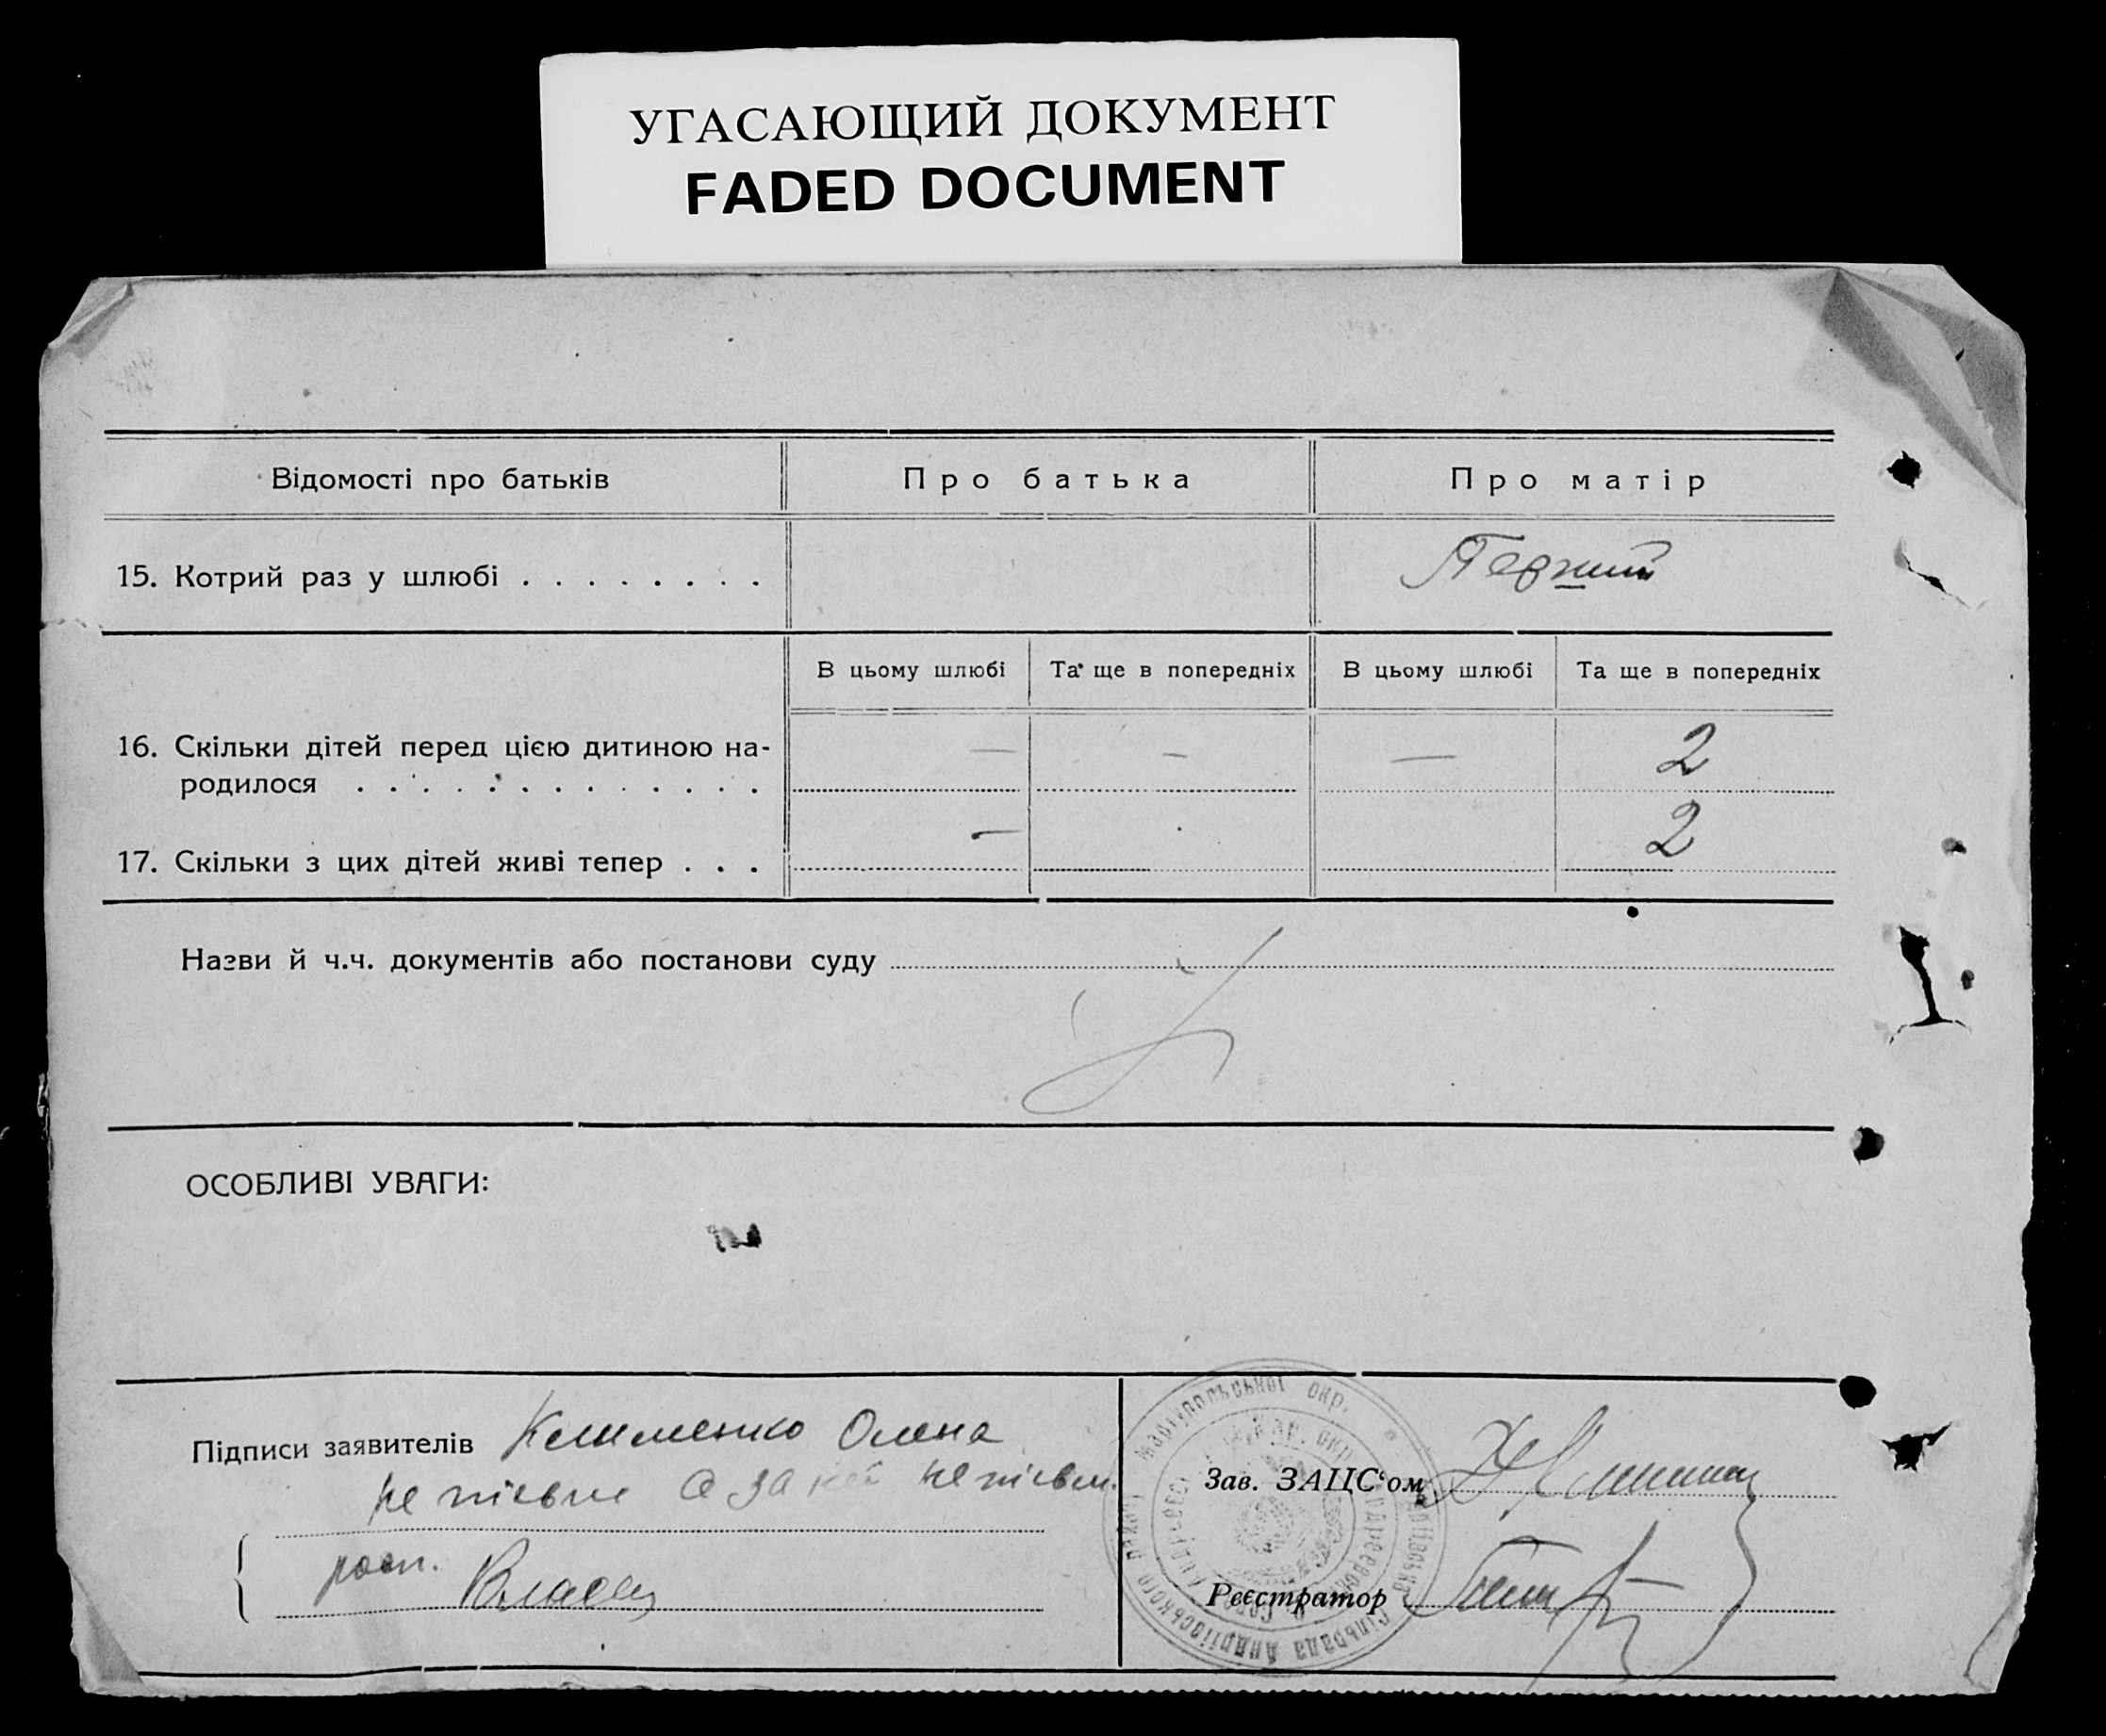 УГАСАЮЩИЙ ДОКУМЕНТ
FADED DOCUMENT
Відомості про батьків
Про батька
Про матір
15. Котрий раз у шлюбі . . . . . . . .
Первий
В цьому шлюбі
Та ще в попередніх
В цьому шлюбі
Та ще в попередніх
16. Скільки дітей перед цією дитиною на-
родилося . . . . . . . . . . . . .
— — — 2
17. Скільки з цих дітей живі тепер . . .
— 2
Назви й ч.ч. документів або постанови суду
ОСОБЛИВІ УВАГИ:
Підписи заявителів Клименко Олена
не письм. а за неї не письм.
росп. Власец
Зав. ЗАЦС'ом
Реєстратор
Маріупольської окр.
сільрада Андріївського